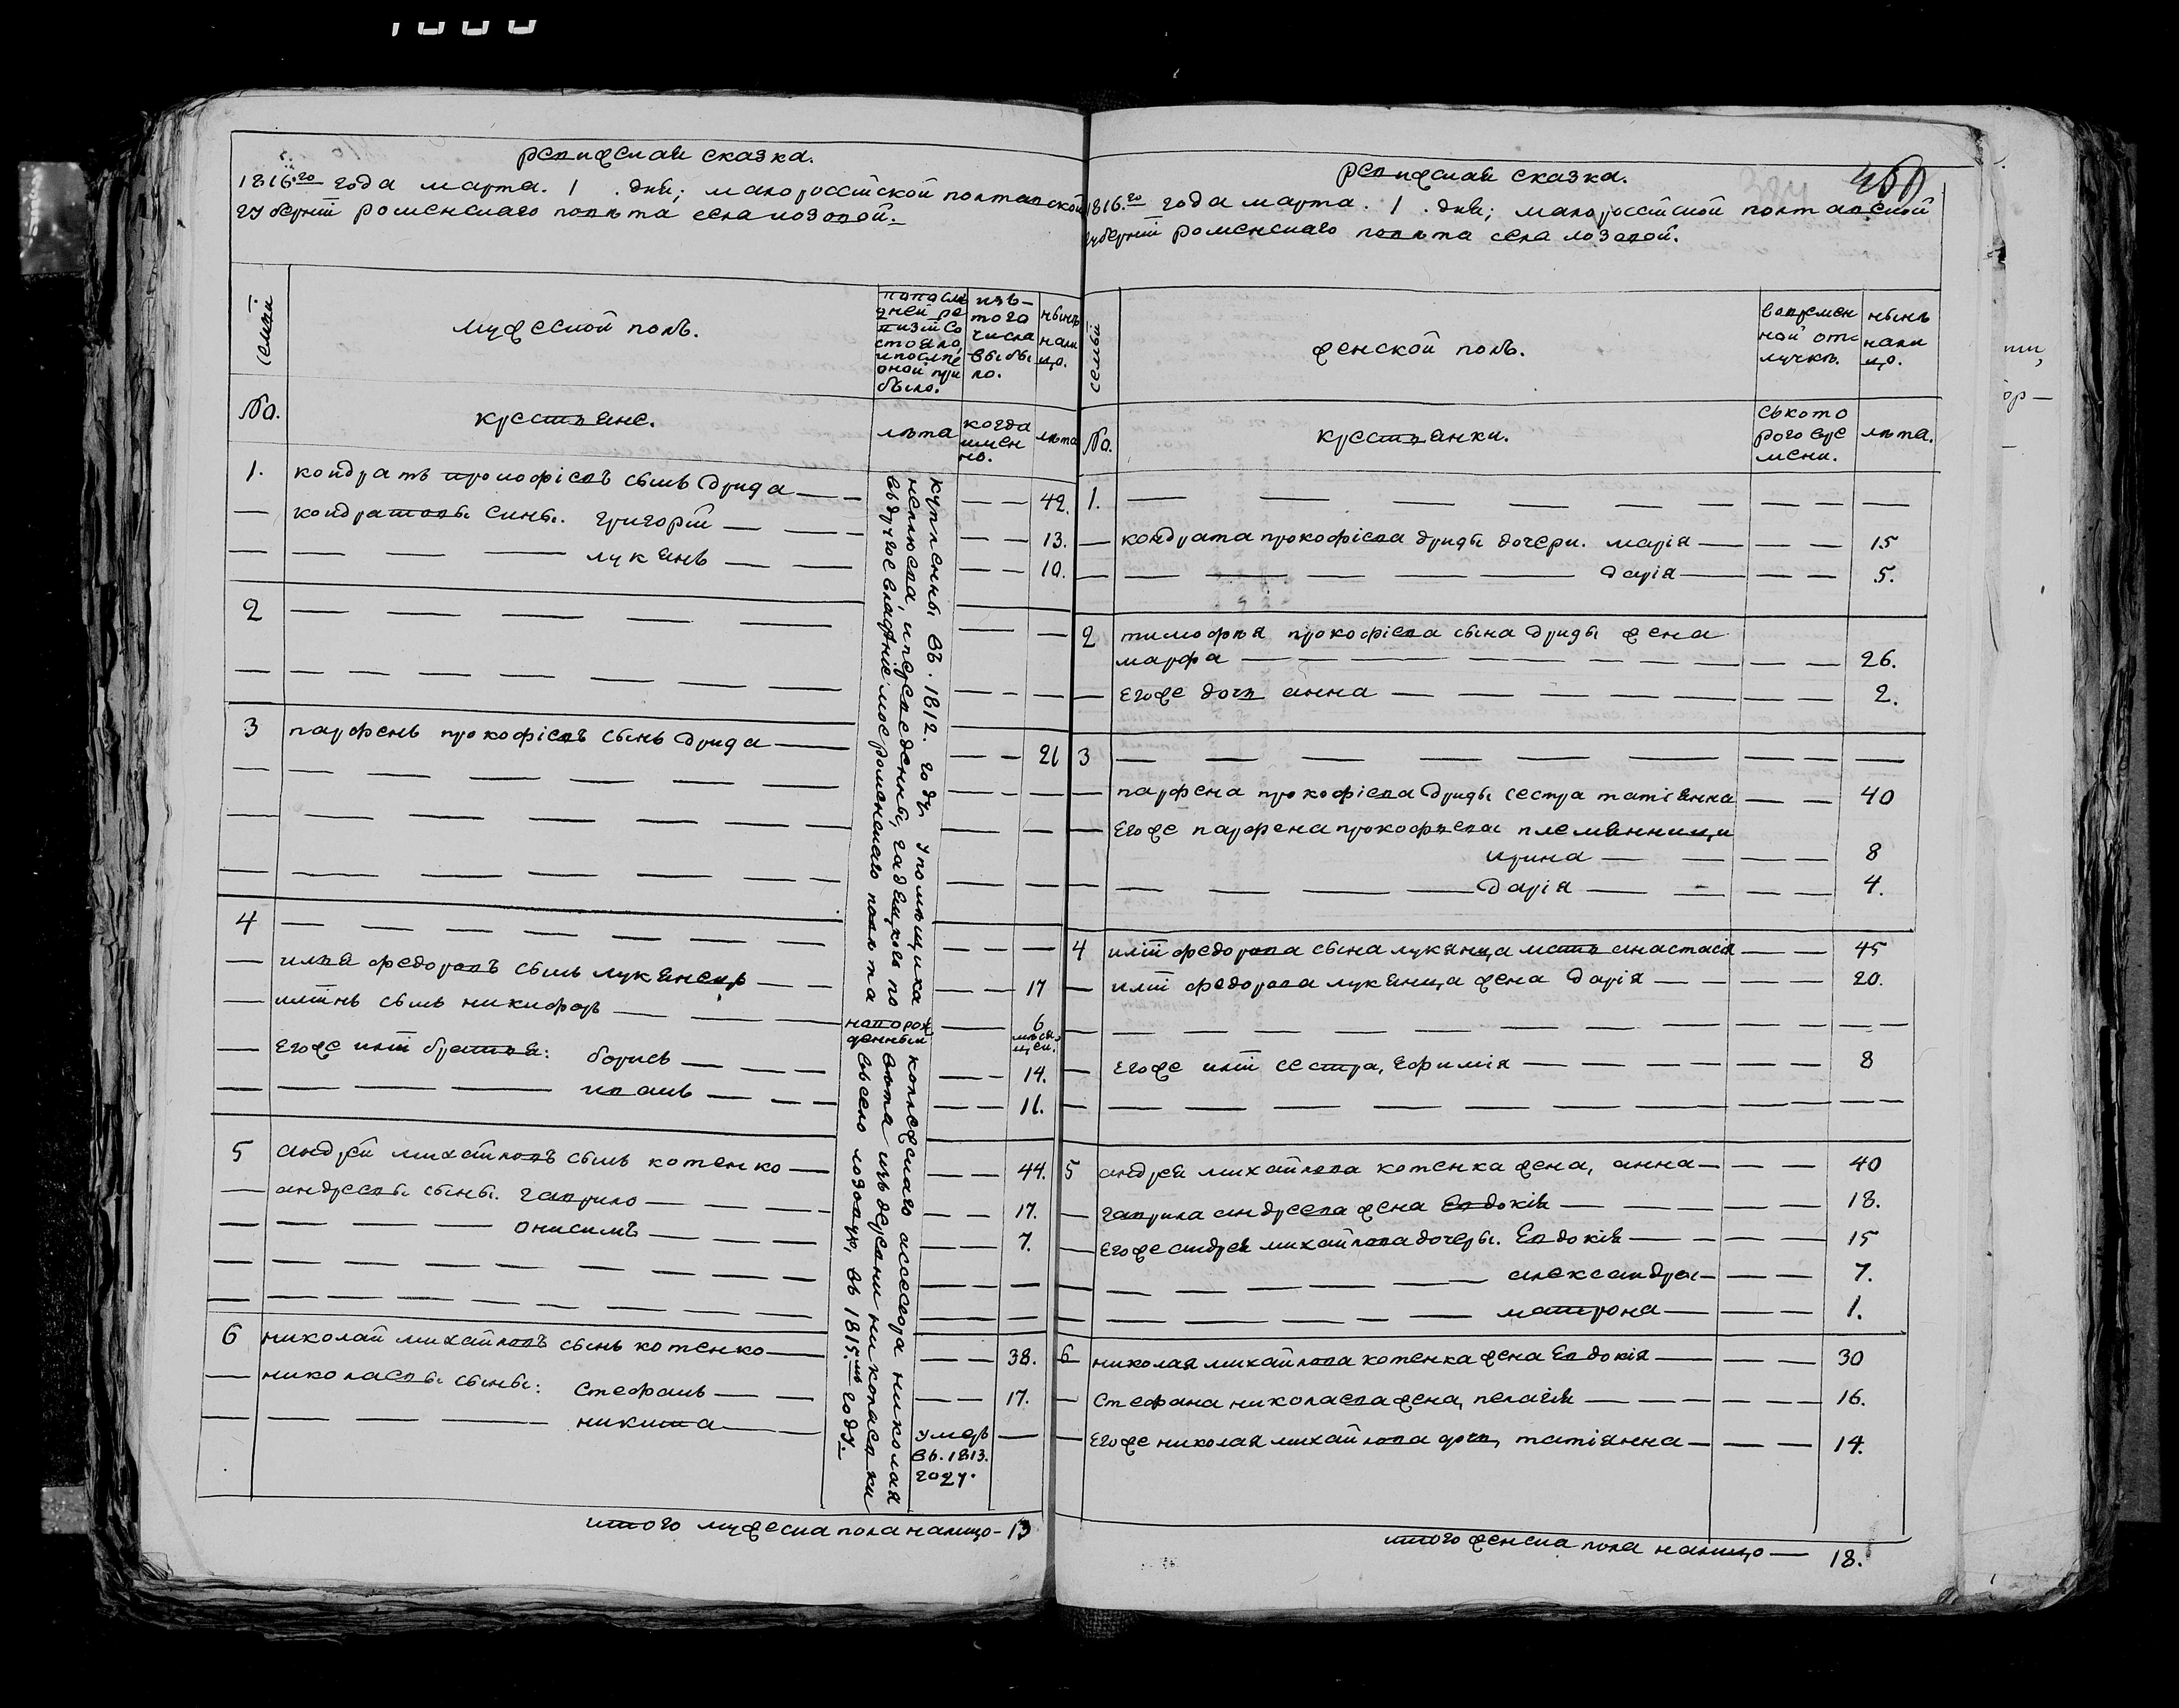 ревижская сказка.
1816.го года марта. 1 . дня; малороссійской полтавской
губерніи роменскаго повѣта села лозовой.
семьи
мужеской полъ.
попослѣ
дней ре
визіи со
стояло,
и послѣ
оной при
было.
изъ-
того
числа
выбы
ло.
нынѣ
нали
цо.
№.
крестьяне.
лѣта
когда
имен
но.
лѣта
1. кондратъ прокофіевъ сынъ дрига 42.
кондратовы сины. григорій 13.
лукьянъ 10.
2
3 парфенъ прокофіевъ сынъ дрига 21
4
илья федоровъ сынъ лукьянецъ 17
ильинъ сынъ никифоръ новорож
денный 6
мѣся
цеи.
егоже ильи братья: борисъ 14.
иванъ 11.
5 андрей михайловъ сынъ котенко 44.
андреевы сыны. гаврило 17.
онисимъ 7.
6 николай михайловъ сынъ котенко 38.
николаевы сыны: стефанъ 17.
никита умеръ
въ. 1813.
году.
куплены въ. 1812. году упомѣщика колежскаго ассесора николая
неплюева, и преведенны, гадяцкого повѣта изъ деревни николаевки
въ другое владѣніе мое роменскаго повѣта въ село лозовую, въ 1815.мъ году.
итого мужеска пола налицо - 13
450
ревижская сказка.
1816.го года марта . 1 . дня; малороссійской полтавской
губерніи роменскаго повѣта села лозовой.
семьи
женской полъ.
вовремен
ной от-
лучкѣ.
нынѣ
нали
цо.
№.
крестьянки.
съкото
рого вре
мени.
лѣта.
1.
кондрата прокофіева дриги дочери. марія 15
дарія 5.
2 тимофѣя прокофіева сына дриги жена
марфа 26.
егоже дочь анна 2.
3
парфена прокофіева дриги сестра татіянна 40
егоже парфена прокофьева племянници
ирина 8
дарія 4.
4 иліи федорова сына лукянца мать анастасія 45
иліи федорова лукянца жена дарія 20.
егоже иліи сестра, ефимія 8
5 андрея михайлова котенка жена, анна 40
гаврила андреева жена евдокія 18.
егоже андрея михайлова дочеры. евдокія 15
александра 7.
матрона 1.
6 николая михайлова котенка жена евдокія 30
стефана николаева жена, пелагія 16.
егоже николая михайлова дочь, татіянна 14.
итого женска пола налицо 18.